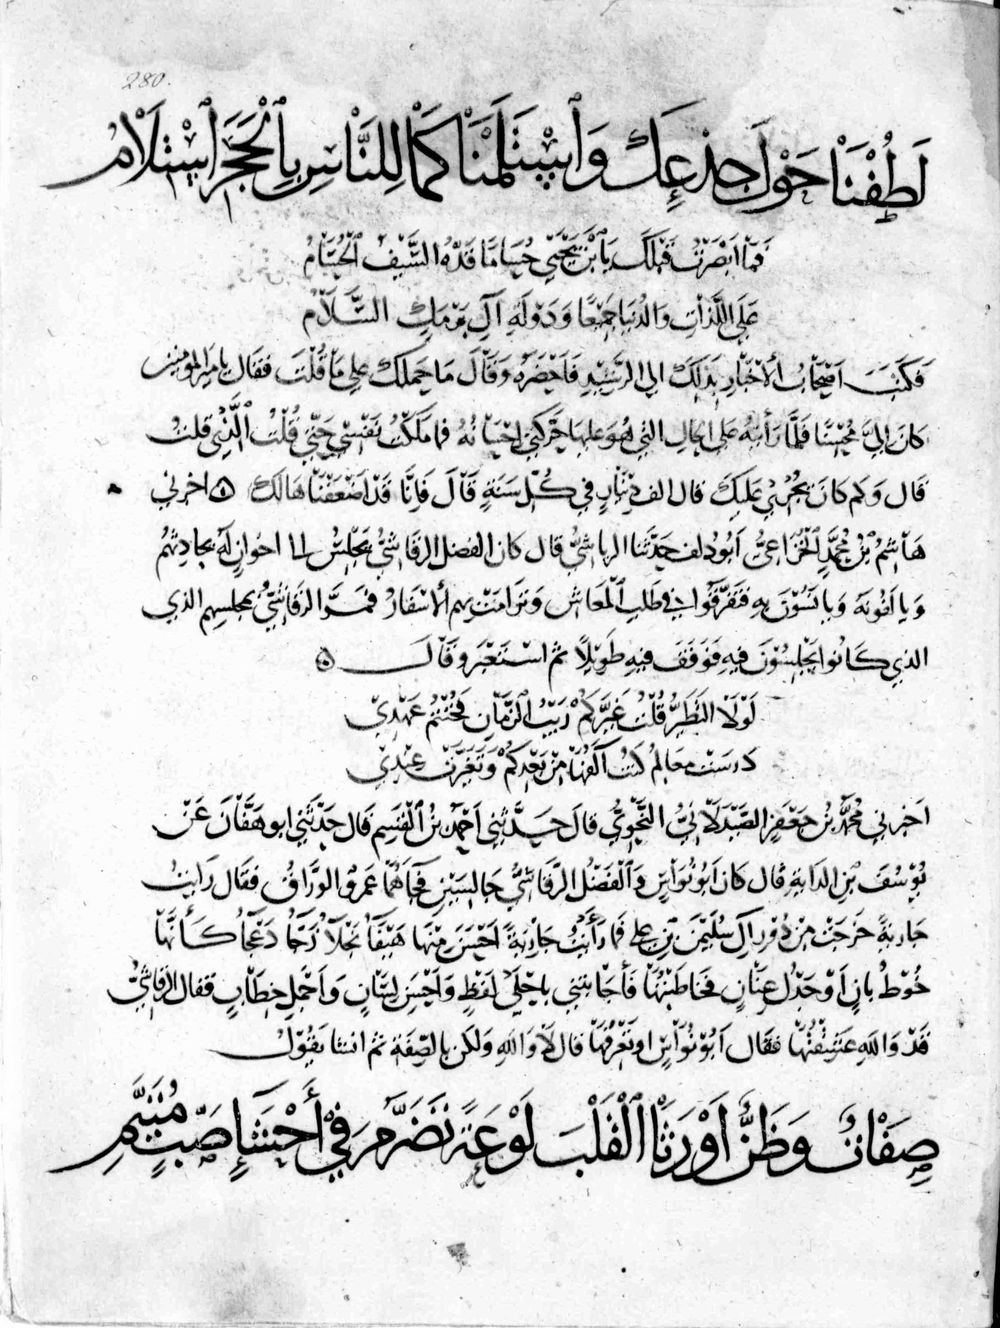 280.
لَطُفْنَا حَوْلَ جِذْعِكَ وَٱسْتَلَمْنَا كَمَا لِلنَّاسِ بِٱلْحَجَرِ ٱسْتِلَامُ
فَمَا أَبْصَرْتُ قَبْلَكَ يَا ٱبْنَ يَحْيَىٰ حُسَامًا قَدَّهُ السَّيْفُ ٱلْحُسَامُ
عَلَى اللَّذَاتِ وَالدُّنْيَا جَمِيعًا وَدَوْلَةِ آلِ بَرْمَكٍ السَّلَامُ
فَكَتَبَ أَصْحَابُ ٱلْأَخْبَارِ بِذَلِكَ إِلَى الرَّشِيدِ فَأَحْضَرَهُ وَقَالَ مَا حَمَلَكَ عَلَى مَا قُلْتَ فَقَالَ يَا مِيرَ المُومِنِين
كَانَ إِلَيَّ مُحْسِنًا فَلَمَّا رَأَيْتُهُ عَلَى الحَالِ الَّتِي هُوَ عَلَيْهَا حَرَّكَنِي إِحْسَانُهُ فَمَا مَلَكْتُ نَفْسِي حَتَّى قُلْتُ الَّذِي قُلْتُ
قَالَ وَكَمْ كَانَ يُجْرِي عَلَيْكَ قَالَ الف دِينَارٍ فِي كُلِّ سَنَةٍ قَالَ فَإِنَّا قَدْ أَضْعَفْنَاهَا لَكَ ۞ اخبرني
هَاشِمُ بْنُ مُحَمَّدٍ ٱلْخُزَاعِيُّ أَبُو دُلَف حَدَّثَنَا الرياشيُّ قال كان الفضل الرقاشيُّ يجلسُ الى اخوانٍ لَهُ يحادثهُم
وَيَالَفُونَهُ وَيَانَسُوْنَ بِهِ فَتَفَرَّقُوا فِي طَلَبِ ٱلْمَعَاشِ وَتَرَامَتْ بِهِم ٱلْأَسْفَارُ فَمَرَّ الرَّقَاشِيُّ بِمَجْلِسِهِم الذي
الذي كَانُوا يَجْلِسُوْنَ فِيهِ فَوَقَفَ فِيهِ طَوِيْلًا ثُمَّ اسْتَعْبَرَ وَقَالَ ۞
لَوْلَا التَّطَيُّرُ قُلْتُ غَيَّرَكُمْ رَيْبُ الزَّمَانِ فَخُنْتُمُ عَهْدِي
دَرَسَتْ مَعَالِمُ كُنْتُ آلَفُهَا مِنْ بَعْدِكُمْ وَتَغَيَّرَتْ عِنْدِي
اخبرني مُحَمَّدُ بْنُ جَعْفَرٍ الصَّيْدَلَانِيُّ النَّحْوِيُّ قَالَ حَدَّثَنِي أَحْمَدُ بْنُ ٱلْقٰسِمِ قَالَ حَدَّثَنِي ابو هَفَّانَ عَنْ
يُوْسُفَ بْنِ الدَّايَةِ قَالَ كَانَ ابُو نُوَاسٍ وَٱلْفَضْلُ الرَّقَاشِيُّ جَالِسَيْنِ فَجَاءَهُمَا عَمْرٌو الوَرَّاقُ فَقَالَ رَايْتُ
جَارِيَةً خَرَجَتْ مِنْ دُوْرِ آلِ سُلَيْمٰنَ بْنِ عَلِي فَمَا رَأَيْتُ جَارِيَةً أَحْسَنَ مِنْهَا هَيْفَاءَ نَجْلَاءَ زَجَّاءَ دَعْجَاءَ كَأَنَّهَا
خُوْطُ بَانٍ أَوْ جَدْلُ عِنَانٍ فَخَاطَبْتُهَا فَأَجَابَتْنِي بِأَحْلَى لَفْظٍ وَأَحْسَنِ لِسَانٍ وَأَجْمَلِ خِطَابٍ فَقَالَ الرَّقَاشِيُّ
قَدْ وَاللهِ عَشِقْتُهَا فَقَال أَبُوْ نُوَاسٍ اوَتَعْرِفُهَا قَالَ لَا وَاللهِ وَلَكِنْ بِالصِّفَةِ ثُمَّ انشَا يَقُوْلُ
صِفَاتٌ وَظَنٌّ أَوْرَثَا ٱلْقَلْبَ لَوْعَةً تَضَرَّمُ فِيْ أَحْشَاءِ صَبٍّ مُتَيَّمِ